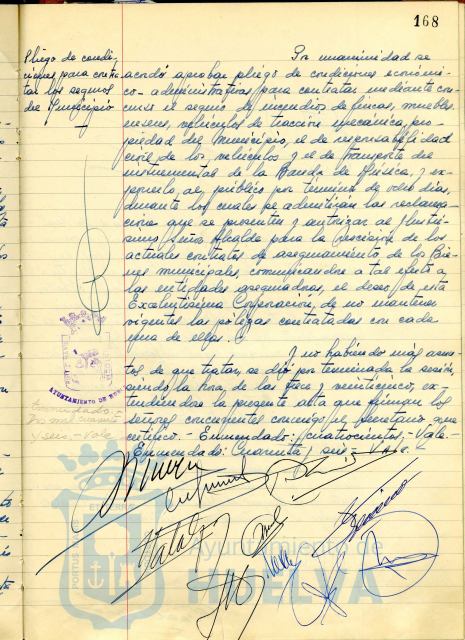 168
Pliego de condi-
ciones para contra-
tar los seguros
del Municipio
Por unanimidad se
acordó aprobar pliego de condiciones económi-
co-administrativas, para contratar mediante con-
curso el seguro de incendios de fincas, muebles,
enseres, vehículos de tracción mecánica, pro-
piedad del Municipio, el de responsabilidad
civil de los vehículos y el de transporte del
instrumental de la Banda de Música, y ex-
ponerlo al público por término de ocho días,
durante los cuales se admitirán las reclama-
ciones que se presenten y autorizar al Ilustrí-
simo señor Alcalde para la rescisión de los
actuales contratos de aseguramiento de los Bie-
nes municipales comunicándose a tal efecto a
las entidades aseguradoras, el deseo de esta
Excelentísima Corporación, de no mantener
vigentes las pólizas contratadas con cada
una de ellas.
Y no habiendo más asun-
tos de que tratar, se dió por terminada la sesión,
siendo la hora de las trece y veinticinco, ex-
tendiéndose la presente acta que firman los
señores concurrentes conmigo el Secretario que
certifico. - Enmendado: cuatrocientos, - Vale. -
Enmendado: Cuarenta y seis - Vale. -
AYUNTAMIENTO DE
Enmendado: -
y seis - Vale
Ayuntamiento de
HUELVA